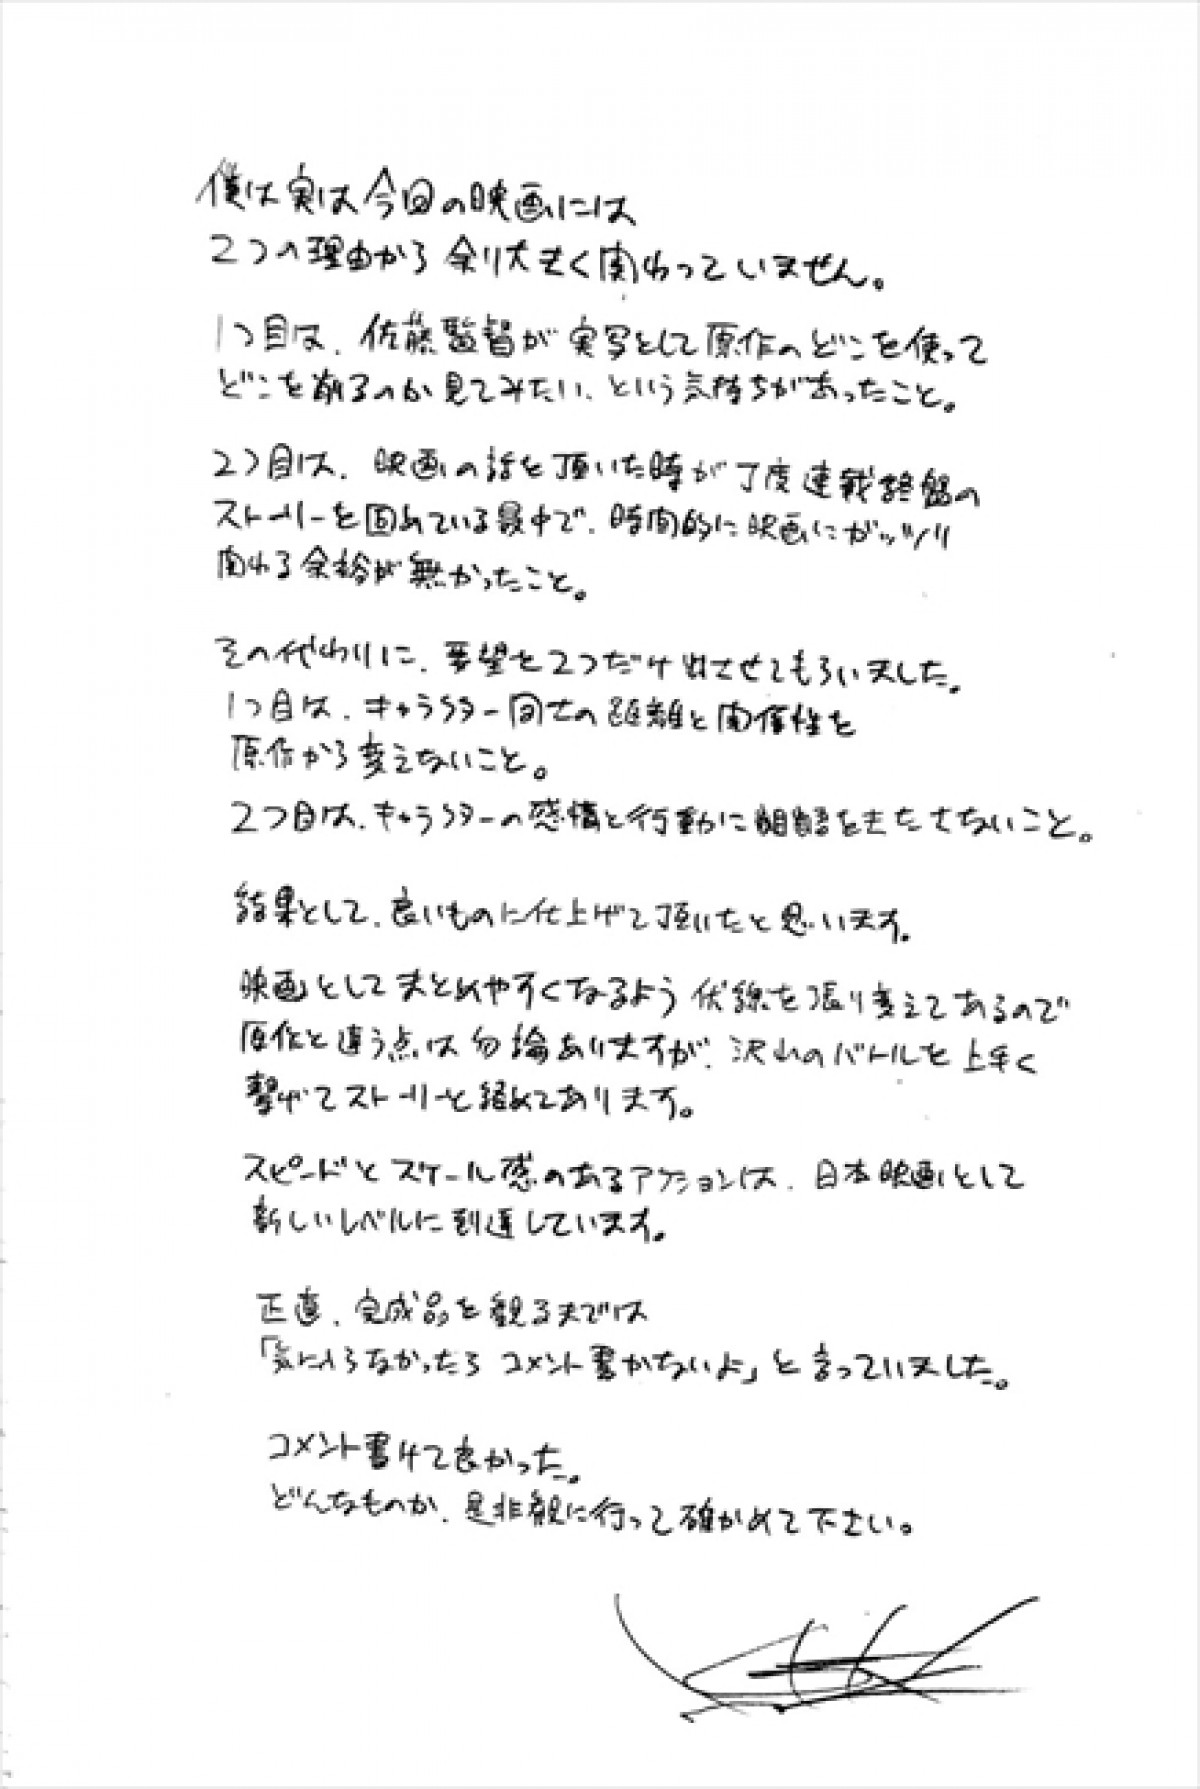 僕は実は今回の映画には
2つの理由から余り大きく関わっていません。
1つ目は、佐藤監督が実写として原作のどこを使って
どこを削るのか見てみたい、という気持ちがあったこと。
2つ目は、映画の話を頂いた時が丁度連載終盤の
ストーリーを固めている最中で、時間的に映画にガッツリ
関わる余裕が無かったこと。
その代わりに、要望を2つだけ出させてもらいました。
1つ目は、キャラクター同士の距離と関係性を
原作から変えないこと。
2つ目は、キャラクターの感情と行動に齟齬をきたさないこと。
結果として、良いものに仕上げて頂いたと思います。
映画としてまとめやすくなるよう伏線を張り変えてあるので
原作と違う点は勿論ありますが、沢山のバトルを上手く
繋げてストーリーを纏めてあります。
スピードとスケール感のあるアクションは、日本映画として
新しいレベルに到達しています。
正直、完成品を観るまでは
「気に入らなかったらコメント書かないよ」と言っていました。
コメント書けて良かった。
どんなものか、是非観に行って確かめて下さい。